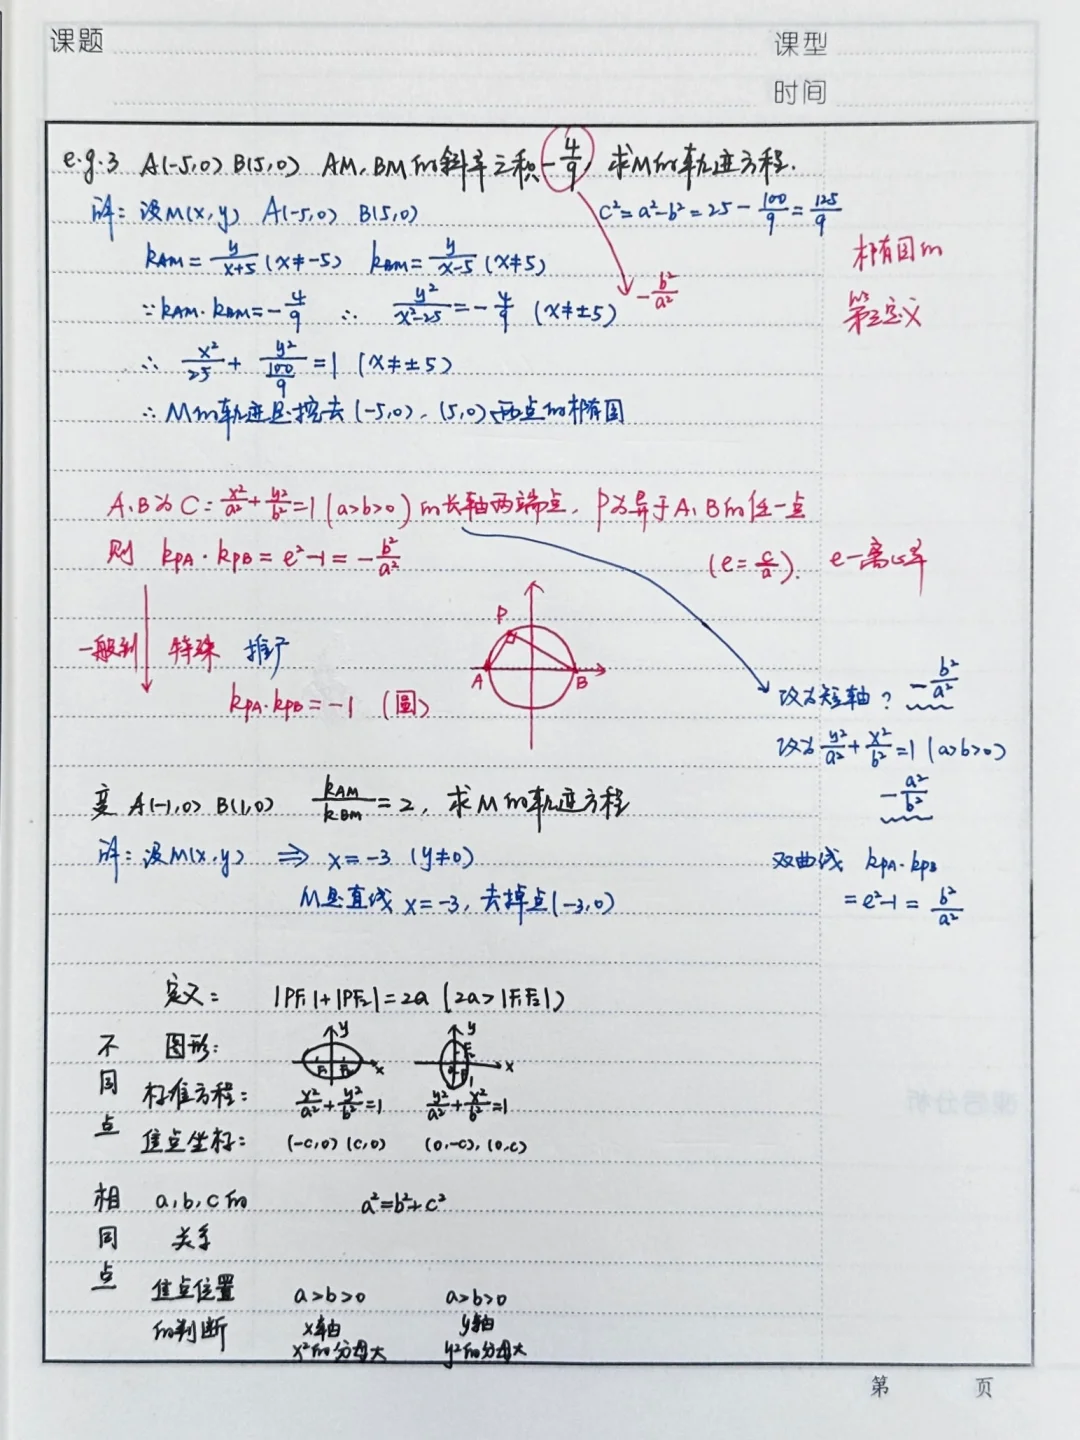 课题
课型
时间
e.g.3 A(-5,0) B(5,0) AM、BM的斜率之积-4/9, 求M的轨迹方程.
解: 设M(x,y) A(-5,0) B(5,0)
c²=a²-b²=25-100/9=125/9
kAM=y/(x+5) (x≠-5) kBM=y/(x-5) (x≠5)
椭圆的
-b²/a²
∵kAM·kBM=-4/9 ∴ y²/(x²-25)=-4/9 (x≠±5)
第三定义
∴ x²/25+y²/(100/9)=1 (x≠±5)
∴M的轨迹是挖去(-5,0)、(5,0)两点的椭圆
A、B为C:x²/a²+y²/b²=1(a>b>0)的长轴两端点, P为异于A、B的任一点
则 kPA·kPB=e²-1=-b²/a² (e=c/a). e-离心率
一般到 特殊 推广
P
A
B
kPA·kPB=-1 (圆)
改为短轴? -b²/a²
改为y²/a²+x²/b²=1(a>b>0)
-a²/b²
变 A(-1,0) B(1,0) kAM/kBM=2, 求M的轨迹方程
解: 设M(x,y) ⇒ x=-3 (y≠0)
M是直线x=-3, 去掉点(-3,0)
双曲线 kPA·kPB
=e²-1=b²/a²
定义: |PF₁|+|PF₂|=2a (2a>|F₁F₂|)
不同点
图形: y x F₁ F₂ y x F₂ F₁
标准方程: x²/a²+y²/b²=1 y²/a²+x²/b²=1
焦点坐标: (-c,0) (c,0) (0,-c), (0,c)
相同点
a,b,c的关系 a²=b²+c²
焦点位置的判断
a>b>0 a>b>0
x轴 y轴
x²的分母大 y²的分母大
第 页